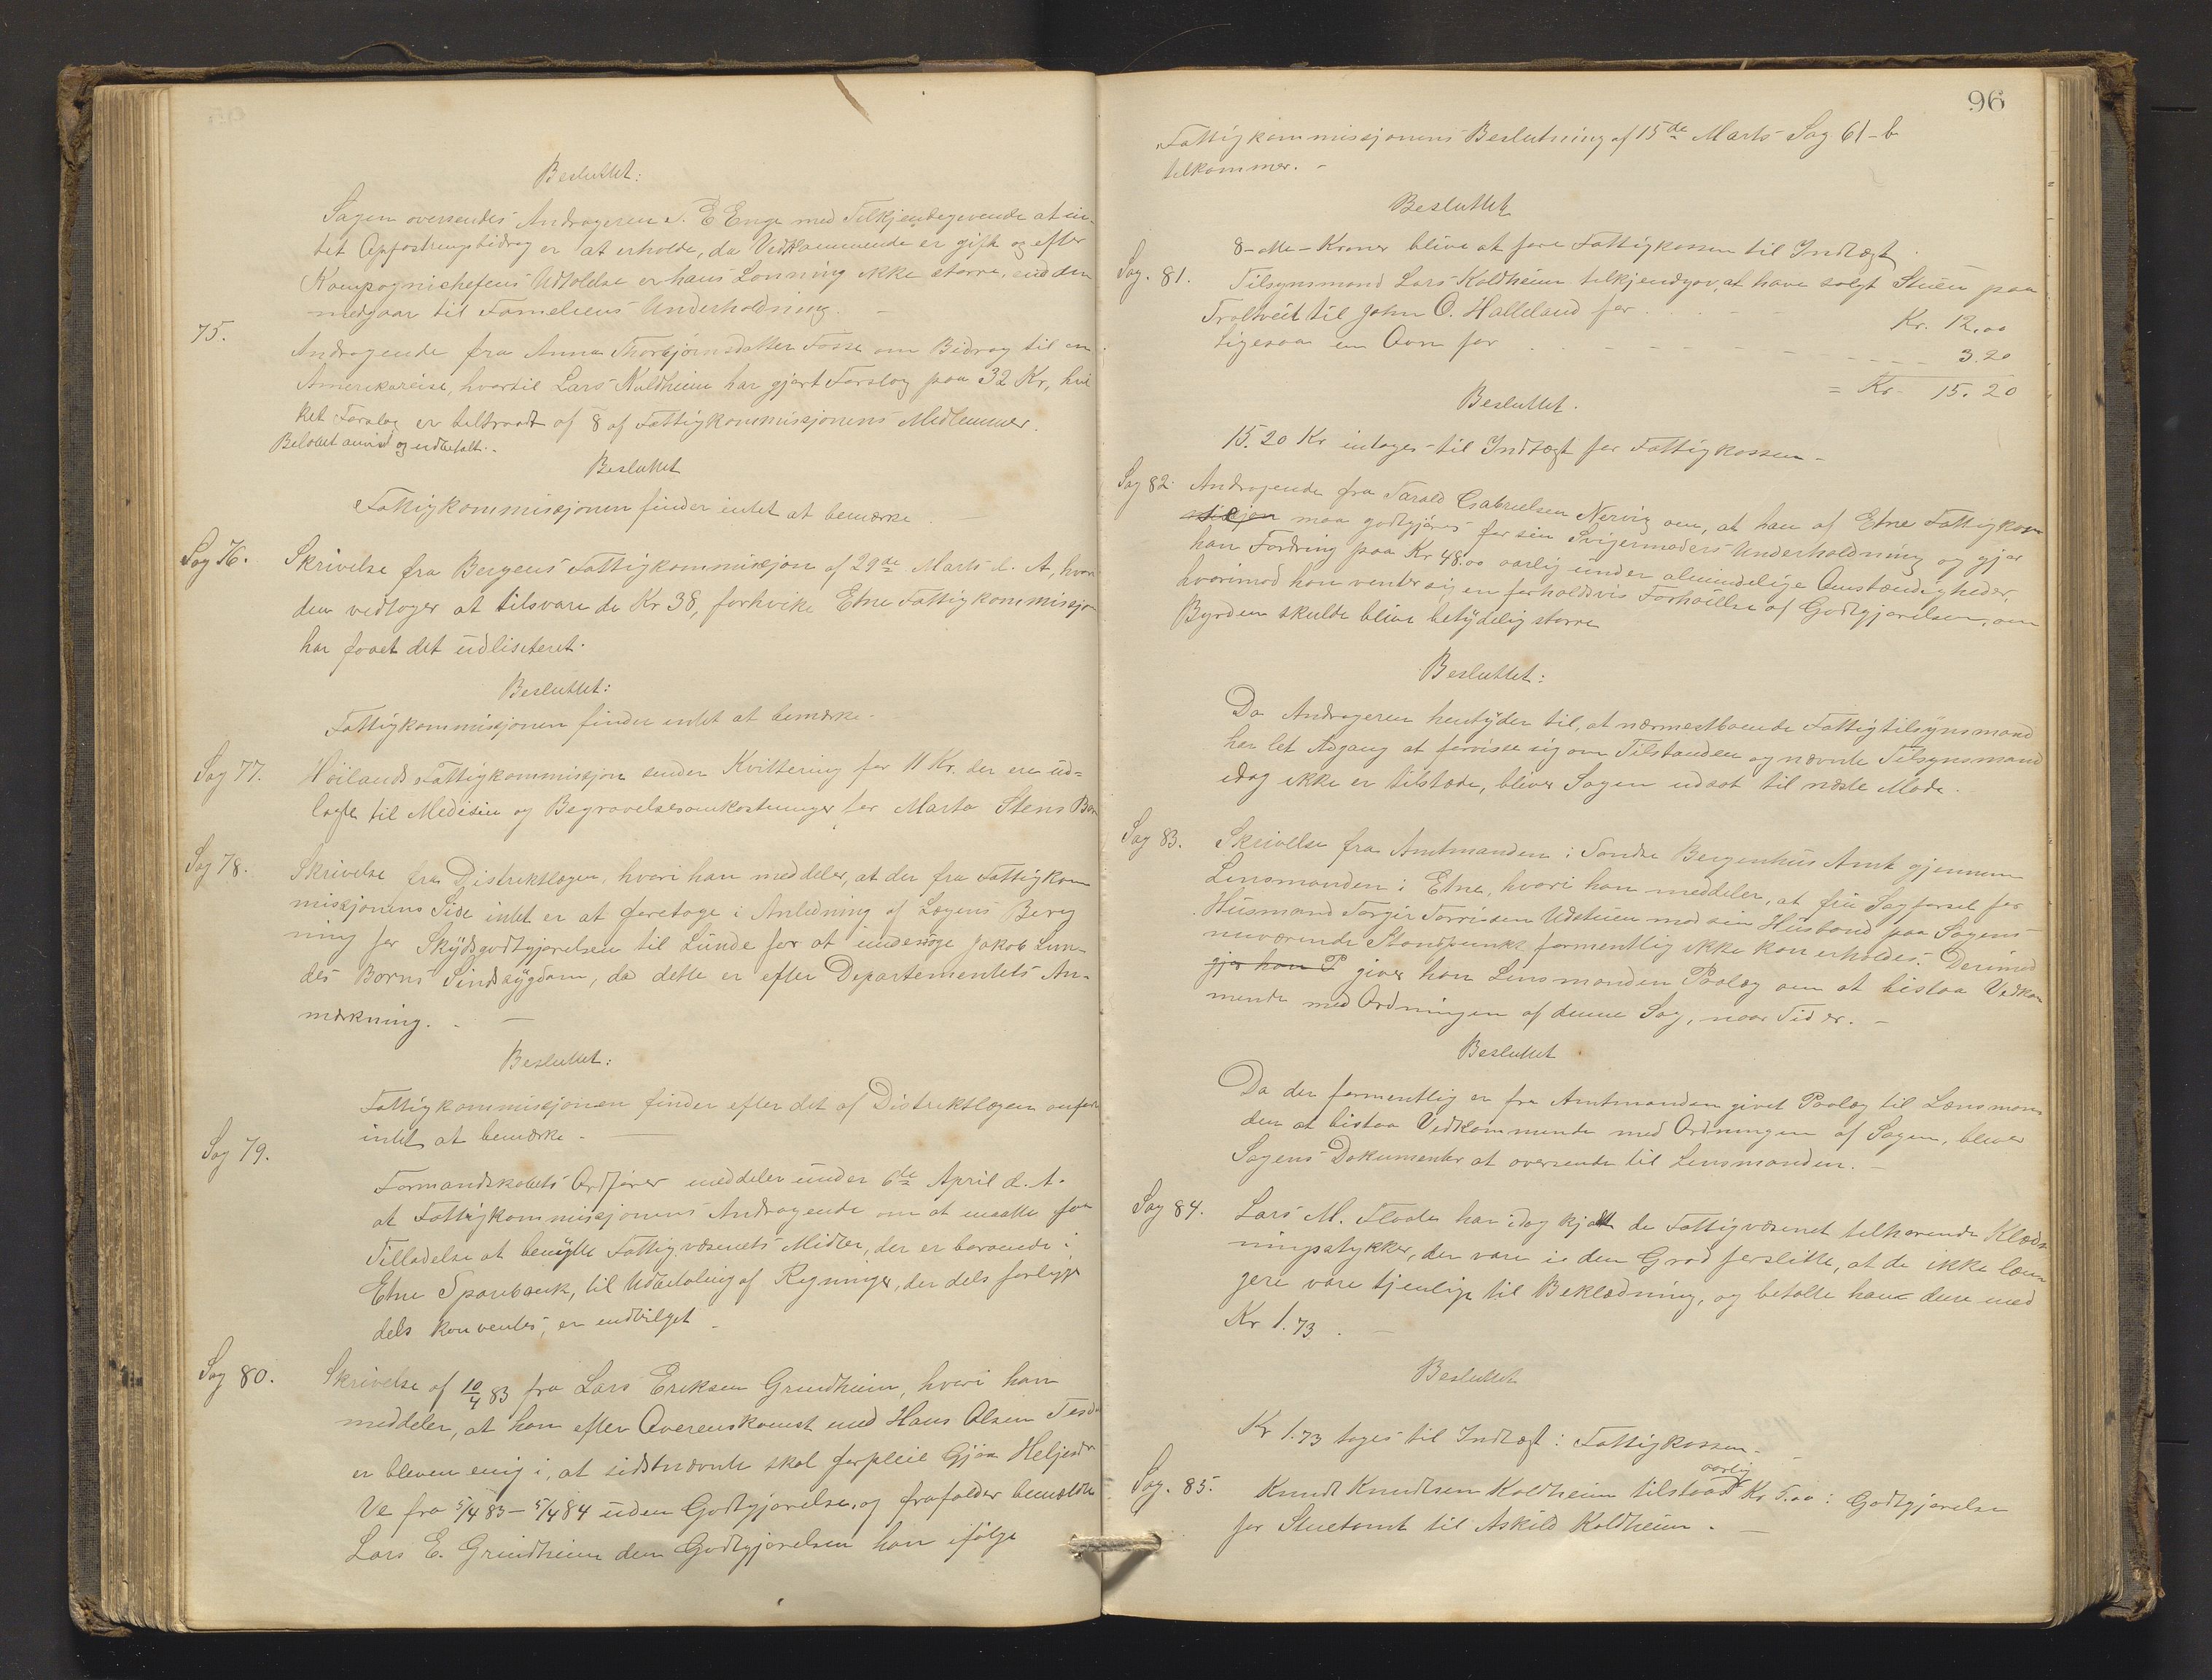 Besluttet:
Sagen oversendes Andrageren S. E Enge med Tilkjendegivende at in-
tet Opfostringsbidrag er at erholde, da Vedkommende er gift og efter
Kompagnichefens Udtalelse er hans Lønning ikke større, end den
medgaar til Fameliens Underholdning. -
75.
Andragende fra Anna Thorbjørnsdatter Fosse om Bidrag til en
Amerikareise, hvortil Lars Kaldheim har gjort Forslag paa 32 Kr, hvil
ket Forslag er tiltraadt af 8 af Fattigkommissjonens Medlemmer.
Beløbet anvist og udbetalt. -
Besluttet
Fattigkommissjonen finder intet at bemærke.
Sag 76.
Skrivelse fra Bergens Fattigkommissjon af 29de Marts d. A, hvori
den vedtager at tilsvare de Kr 38, forhvike Etne Fattigkommissjo
har faaet det udlisiteret.
Besluttet:
Fattigkommissjonen finder intet at bemærke.
Sag 77.
Høilands Fattigkommissjon sender Kvittering for 11 Kr. der ere ud=
lagte til Medisin og Begravelsesomkostninger for Marta Stens Barn
Sag 78.
Skrivelse fra Distriktslægen, hvori han meddeler, at der fra Fattigkom
missjonens Side intet er at foretage i Anledning af Lægens Bereg
ning for Skydsgodtgjørelsen til Lunde for at undersøge Jakob Lun-
des Børns Sindssygdom, da dette er efter Departementets An-
mærkning. -
Besluttet:
Fattigkommissjonen finder efter det af Distriktslægen anført
intet at bemærke. -
Sag 79.
Formandskabets Ordfører meddeler under 6te April d. A.
at Fattigkommissjonens Andragende om at maatte faa
Tilladelse at benytte Fattigvæsenets Midler, der er beroende i
Etne Sparebank, til Udbetaling af Regninger, der dels forligge
dels kan ventes, er indvilget -
Sag 80.
Skrivelse af 10/4 83 fra Lars Eriksen Grindheim, hvori han
meddeler, at han efter Overenskomst med Hans Olsen Tesdal
er bleven enig i, at sidstnævnte skal forpleie Gjøa Heljesdr
Ve fra 5/4 83 - 5/4 84 uden Godtgjørelse, og frafalder bemældte
Lars E. Grindheim den Godtgjørelsen han ifølge
96
Fattigkommissjonens Beslutning af 15de Marts Sag 61-b
tilkommer. -
Besluttet
8 - otte - Kroner blive at føre Fattigkassen til Indtægt
Sag. 81.
Tilsynsmand Lars Kaldheim tilkjendgav, at have solgt Stuen paa
Troltveit til John O. Halleland for . . - - Kr. 12.00
Ligesaa en Ovn for . . - - - - - - - 3.20
= Kr - 15.20
Besluttet.
15.20 Kr intages til Indtægt for Fattigkassen -
Sag 82.
Andragende fra Tarald Gabrielsen Nervig om, at han af Etne Fattigkom
missjon maa godtgjøres for sin Svigermoders Underholdning og gjør
han Fordring paa Kr 48.00 aarlig under almindelige Omstændigheder,
hvorimod han venter sig en forholdsvis Forhøielse af Godtgjørelsen, om
Byrden skulde blive betydelig større
Besluttet:
Da Andrageren hentyder til, at nærmestboende Fattigtilsynsmand
har let Adgang at forvisse sig om Tilstanden og nævnte Tilsynsmand
idag ikke er tilstæde, bliver Sagen udsat til næste Møde.
Sag 83.
Skrivelse fra Amtmanden i Søndre Bergenhus Amt gjennem
Lensmanden i Etne, hvori han meddeler, at fri Sagførsel for
Husmand Torgir Torrissen Udstuen mod sin Husbond paa Sagens
nuværende Standpunkt formentlig ikke kan erholdes. Derimod
gjør han P giver han Lensmanden Paalæg om at bistaa Vedkom
mende med Ordningen af denne Sag, naar Tid er. -
Besluttet
Da der formentlig er fra Amtmanden givet Paalæg til Lensman
den at bistaa Vedkommende med Ordningen af Sagen, bliver
Sagens Dokumenter at oversende til Lensmanden. -
Sag 84.
Lars M. Flaate har idag kjøbt de Fattigvæsenet tilhørende Klæd
ningsstykker, der vare i den Grad forslitte, at de ikke læn
gere vare tjenlige til Beklædning, og betalte han dem med
Kr 1.73. -
Besluttet
Kr 1.73 tages til Indtægt i Fattigkassen. -
Sag. 85.
Knudt Knudtsen Kaldheim tilstaaes aarlig Kr 5.00 i Godtgjørelse
for Stuetomt til Askild Kaldheim. -